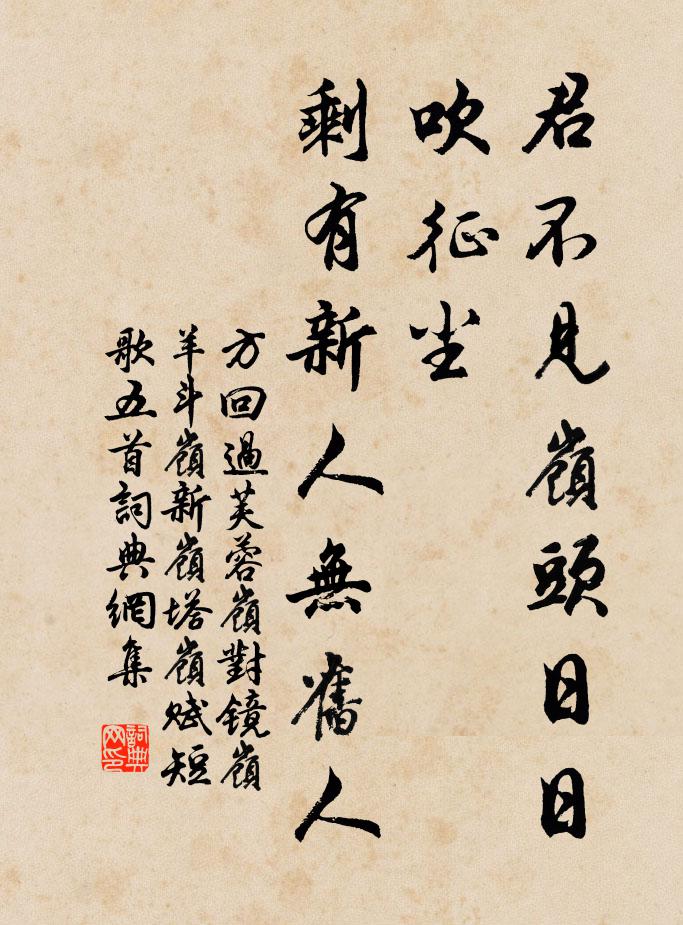 君不見嶺頭日日
吹征尘
剩有新人無舊人
方回過芙蓉嶺對镜嶺
羊斗嶺新嶺塔嶺赋短
歌五首詞典網集
詞典
网印